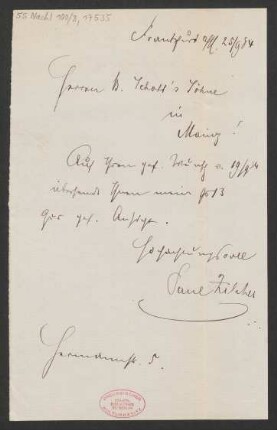 55 Nachl 100/3, 17535
Frankfurt a/M. 23/9 84
Herren B. Schott's Söhne
in
Mainz!
Auf Ihren gef. Wunsch v. 19/9 84
übersende Ihnen mein Op 13
zur gef. Ansicht.
Hochachtungsvoll
Paul Zilcher
Hermannst. 5.